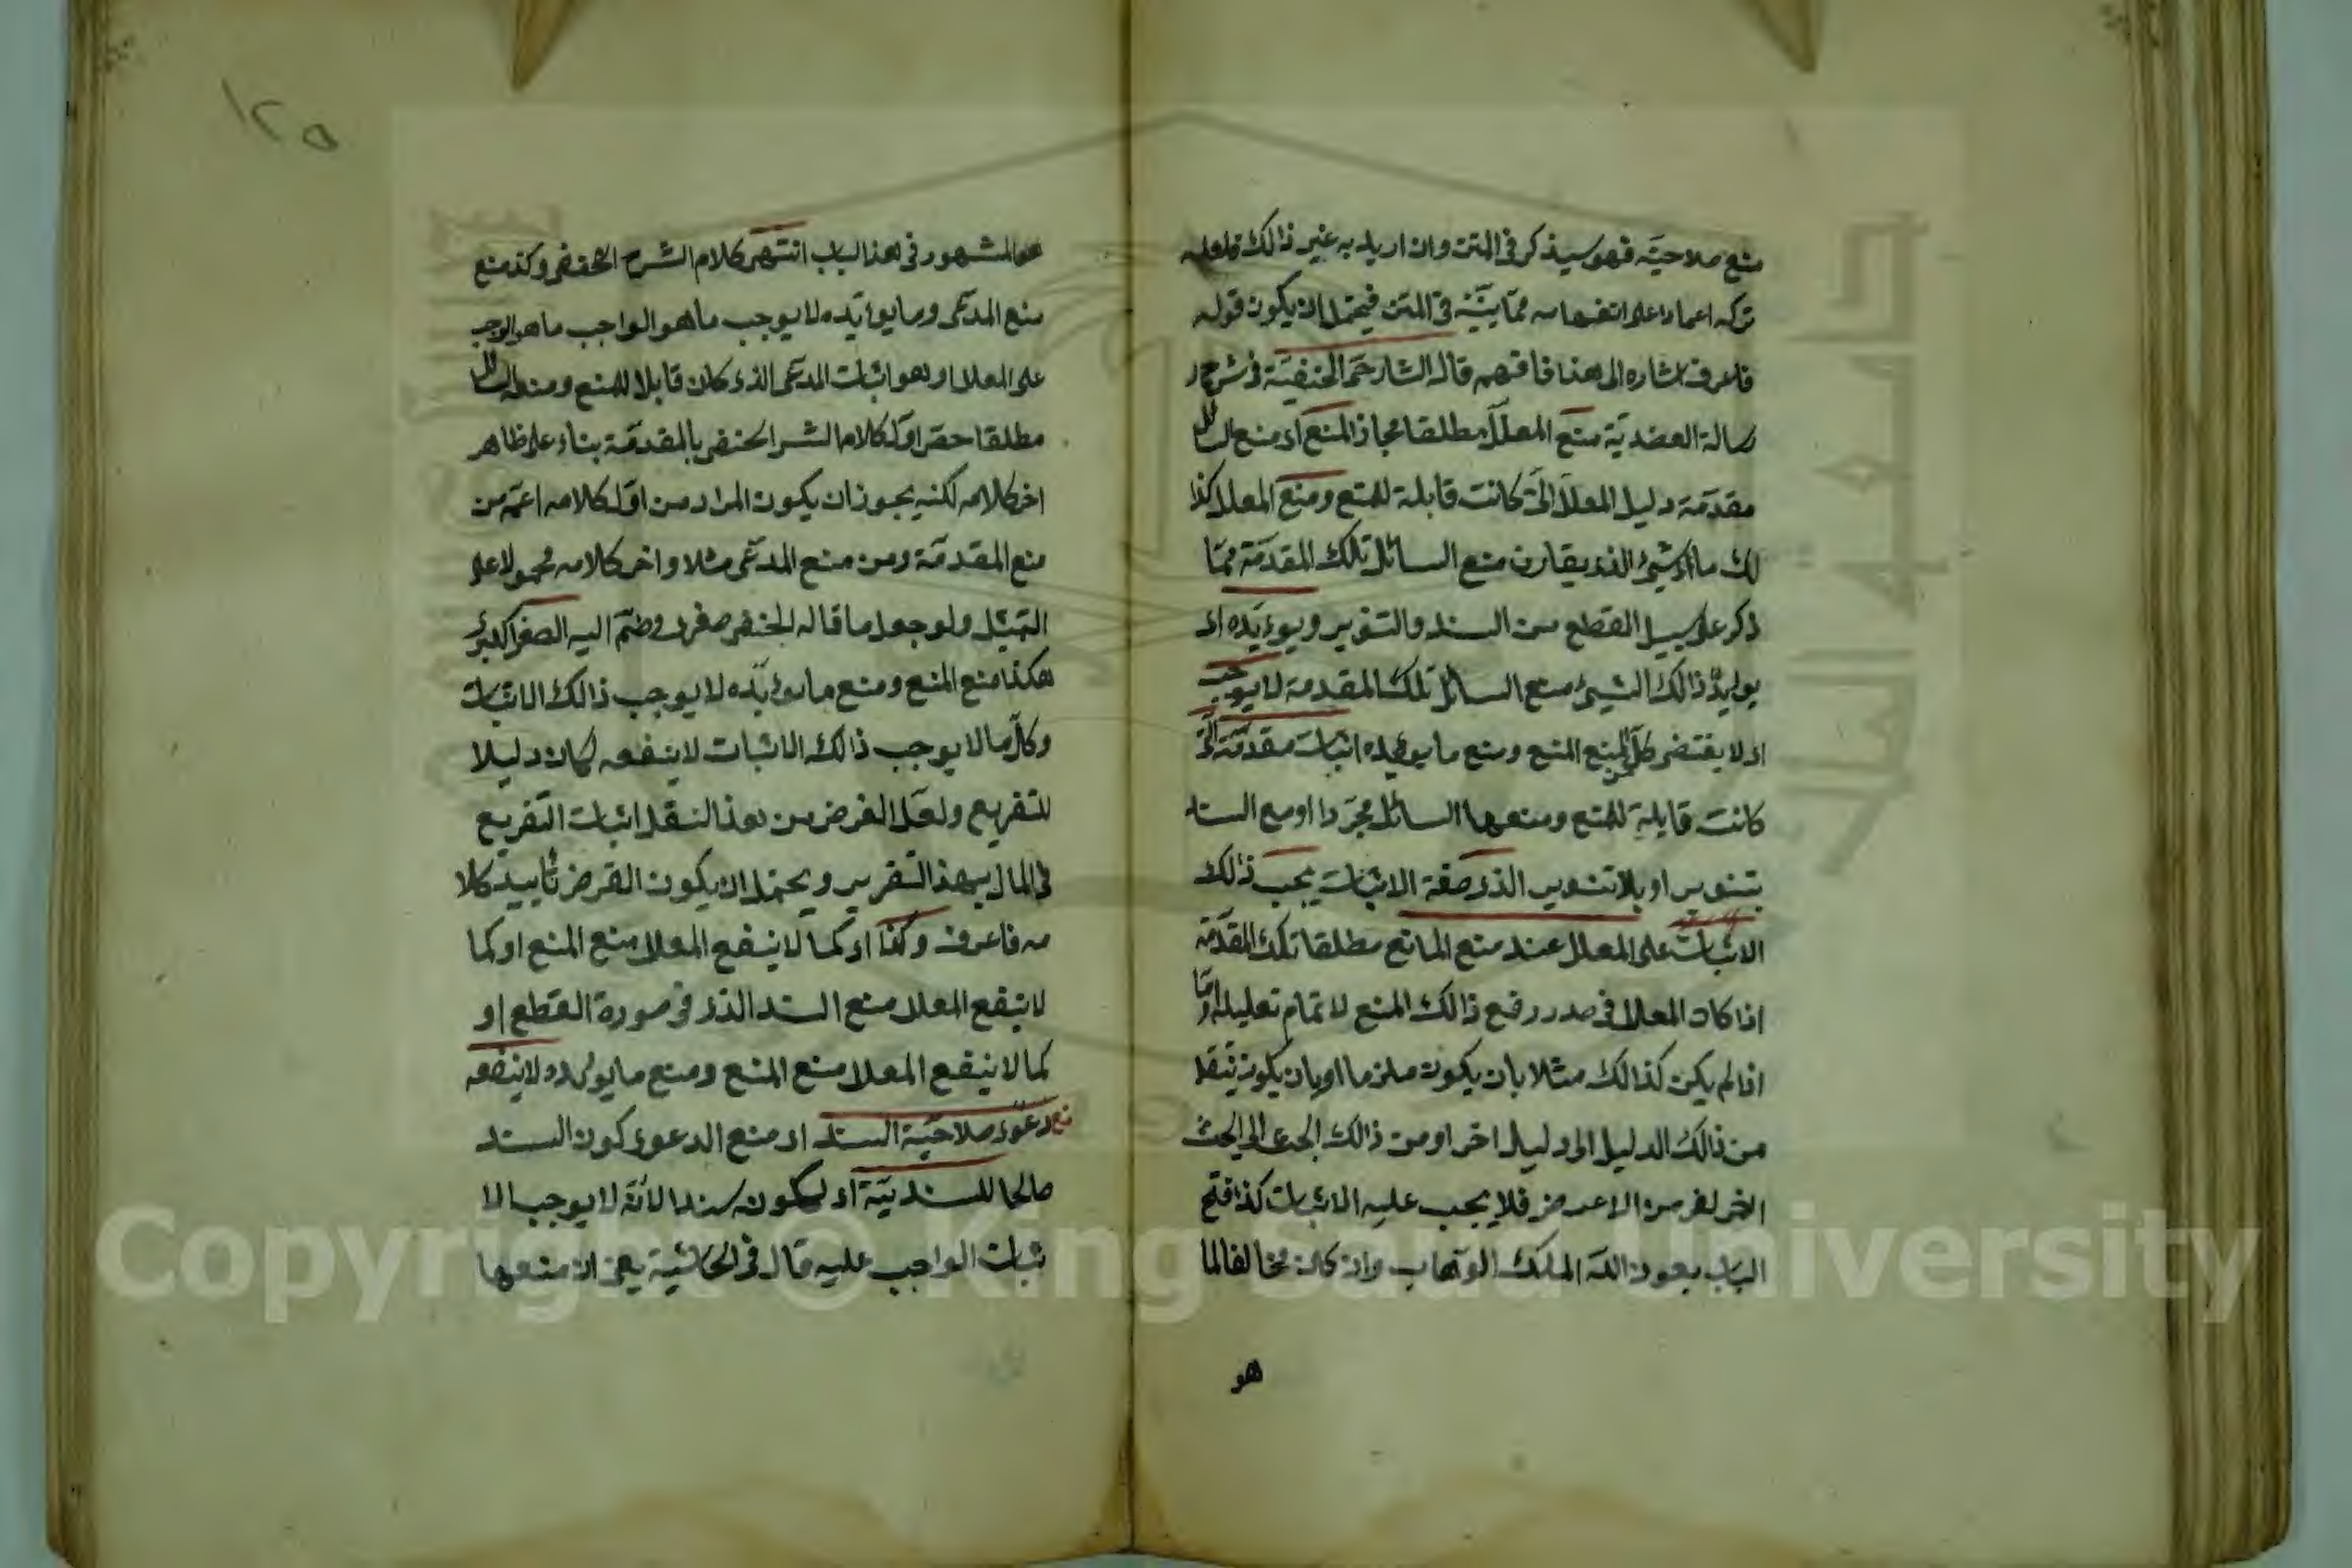 منع صلاحيته فهو سيذكر في المتن وان اريد به غير ذالك فلعله
تركه اعتمادا على انفهامه مما بينه في المتن فيحتمل ان يكون قوله
فاعرف اشاره الى هذا فافهم قال الشارح الحنفية في شرح ر
سالة العضدية منع المعلل مطلقا مجاز المنع اى منع السائل
مقدمة دليل المعلل التى كانت قابلة للمنع ومنع المعلل كذا
لك ما اى شيئ الذى يقارن منع السائل تلك المقدمة مما
ذكر على سبيل القطع من السند والتنوير ويوءيده اى
يوايد ذالك الشيئ منع السائل تلك المقدمة لا يوجب
اى لا يقتضى كل من المنع المنع ومنع ما يويده اثبات مقدمة التى
كانت قابلة للمنع ومنعها السائل مجردا او مع السند
بتنوير او بلا تنوير الذى صفة الاثبات يجب ذالك
الاثبات على المعلل عند منع المانع مطلقا تلك المقدمة
اذا كان المعلل فى صدد رفع ذالك المنع لاتمام تعليله واما
اذا لم يكن كذالك مثلا بان يكون ملزما او بان يكون ينتقل
من ذالك الدليل الى دليل اخر او من ذالك البحث الى البحث
الاخر لغرض من الاغرض فلا يجب عليه الاثبات كذا فتح
الباب بعون الله الملك الوهاب وان كان مخالفا لما
هو
١٢٥
هو المشهور فى هذا الباب انتهى كلام الشرح الحنفى وكذ منع
منع المدعى وما يوءيده لا يوجب ما هو الواجب ما هو الوجب
على المعلل او هو اثبات المدعى الذى كان قابلا للمنع ومنعه السائل
مطلقا حضر اول كلام الشر الحنفى بالمقدمة بناء على ظاهر
اخر كلامه لكنه يجوز ان يكون المراد من اول كلامه اعم من
منع المقدمة ومن منع المدعى مثلا واخر كلامه محمولا على
التمثيل ولو جعل ما قاله الحنفى صغرى وضم اليه الصغر الكبرى
هكذا منع المنع ومنع ما يوءيده لا يوجب ذالك الاثبات
وكل ما لا يوجب ذالك الاثبات لا ينفعه لكان دليلا
للتفريع ولعل الغرض من هذا النقل اثبات التفريع
فى المال بهذ التقرير ويحتمل ان يكون الغرض تأييد كلا
مه فاعرف وكذا اى كما لا ينفع المعلل منع المنع او كما
لا ينفع المعلل منع السند الذى فى صورة القطع او
كما لا ينفع المعلل منع المنع ومنع ما يوئيده لا ينفعه
منع دعوى صلاحية السند اى منع الدعوى كون السند
صالحا للسندية اى ليكون سندا لانه لا يوجب الا
ثبات الواجب عليه قال فى الحاشية يعنى ان منعها
Copyright © King Saud University